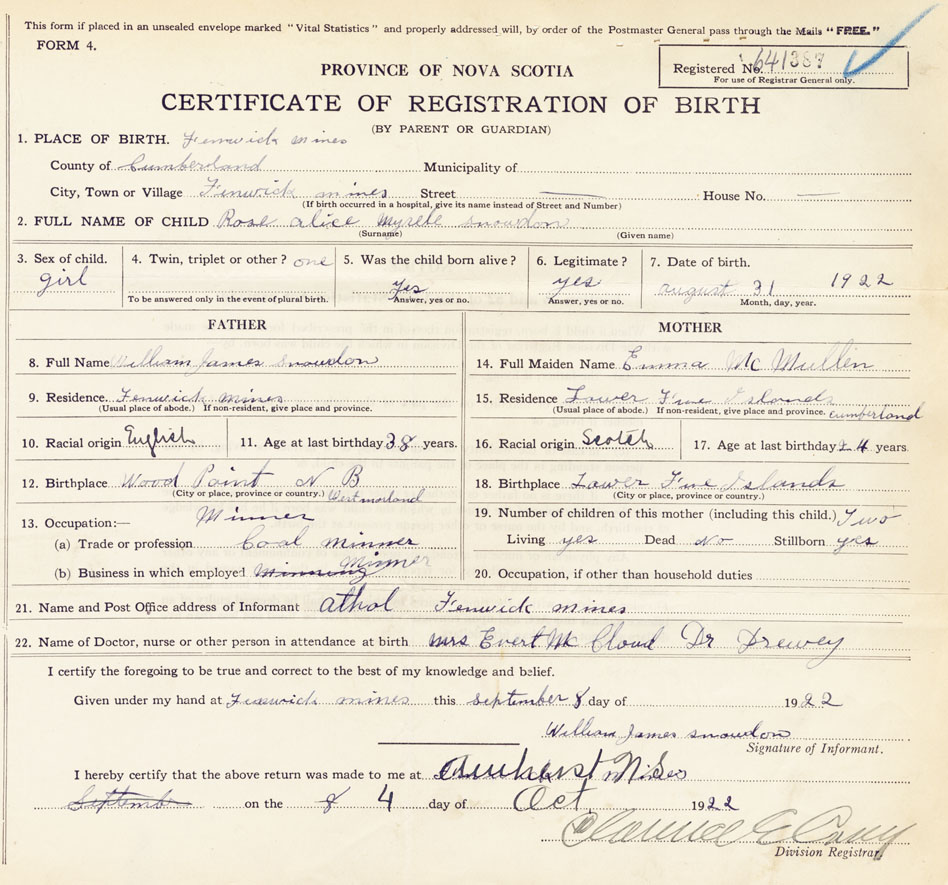 This form if placed in an unsealed envelope marked "Vital Statistics" and properly addressed will, by order of the Postmaster General pass through the Mails "FREE."
FORM 4.
Registered No. 641387
For use of Registrar General only.
PROVINCE OF NOVA SCOTIA
CERTIFICATE OF REGISTRATION OF BIRTH
(BY PARENT OR GUARDIAN)
1. PLACE OF BIRTH. Fenwick mines
County of Cumberland Municipality of
City, Town or Village Fenwick mines Street House No.
(If birth occurred in a hospital, give its name instead of Street and Number)
2. FULL NAME OF CHILD Rose alice Myrtle snowdon
(Surname) (Given name)
3. Sex of child. 4. Twin, triplet or other? one 5. Was the child born alive? 6. Legitimate? 7. Date of birth.
girl Yes yes august 31 1922
To be answered only in the event of plural birth. Answer, yes or no. Answer, yes or no. Month, day, year.
FATHER MOTHER
8. Full Name William James snowdon 14. Full Maiden Name Emma Mc Mullin
9. Residence. Fenwick mines 15. Residence Lower Five Islands
(Usual place of abode.) If non-resident, give place and province. (Usual place of abode.) If non-resident, give place and province. Cumberland
10. Racial origin English 11. Age at last birthday 38 years. 16. Racial origin Scotch 17. Age at last birthday 24 years.
12. Birthplace Wood Point N B 18. Birthplace Lower Five Islands
(City or place, province or country.) Westmorland (City or place, province or country.)
13. Occupation:— Minner 19. Number of children of this mother (including this child.) Two
(a) Trade or profession Coal minner Living yes Dead No Stillborn yes
(b) Business in which employed Minning Minner 20. Occupation, if other than household duties
21. Name and Post Office address of Informant athol Fenwick mines
22. Name of Doctor, nurse or other person in attendance at birth mrs Evert Mc Cloud Dr Drewey
I certify the foregoing to be true and correct to the best of my knowledge and belief.
Given under my hand at Fenwick mines this september 8 day of 1922
William James snowdon
Signature of Informant.
I hereby certify that the above return was made to me at Amherst N.S.
September on the 8 4 day of Oct. 1922
Clarence E Casey
Division Registrar.